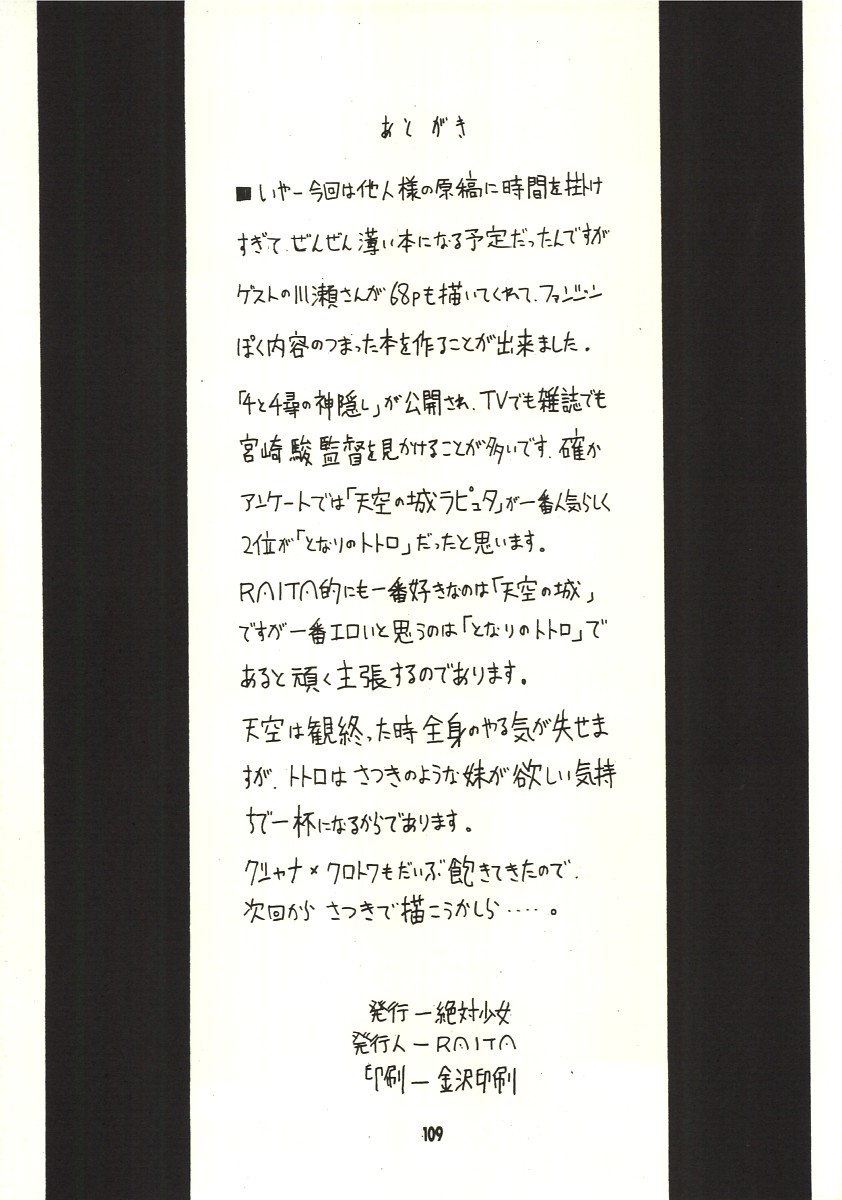 あとがき
■いやー今回は他人様の原稿に時間を掛け
すぎて、ぜんぜん薄い本になる予定だったんですが
ゲストの川瀬さんが68pも描いてくれて、ファンジン
ぽく内容のつまった本を作ることが出来ました。
「千と千尋の神隠し」が公開され、TVでも雑誌でも
宮崎駿監督を見かけることが多いです。確か
アンケートでは「天空の城ラピュタ」が一番人気らしく
2位が「となりのトトロ」だったと思います。
RAITA的にも一番好きなのは「天空の城」
ですが一番エロいと思うのは「となりのトトロ」で
あると頑く主張するのであります。
天空は観終った時全身のやる気が失せま
すが、トトロはさつきのような妹が欲しい気持
ちで一杯になるからであります。
クシャナ×クロトワもだいぶ飽きてきたので、
次回からさつきで描こうかしら‥‥。
発行ー絶対少女
発行人ーRAITA
印刷ー金沢印刷
109